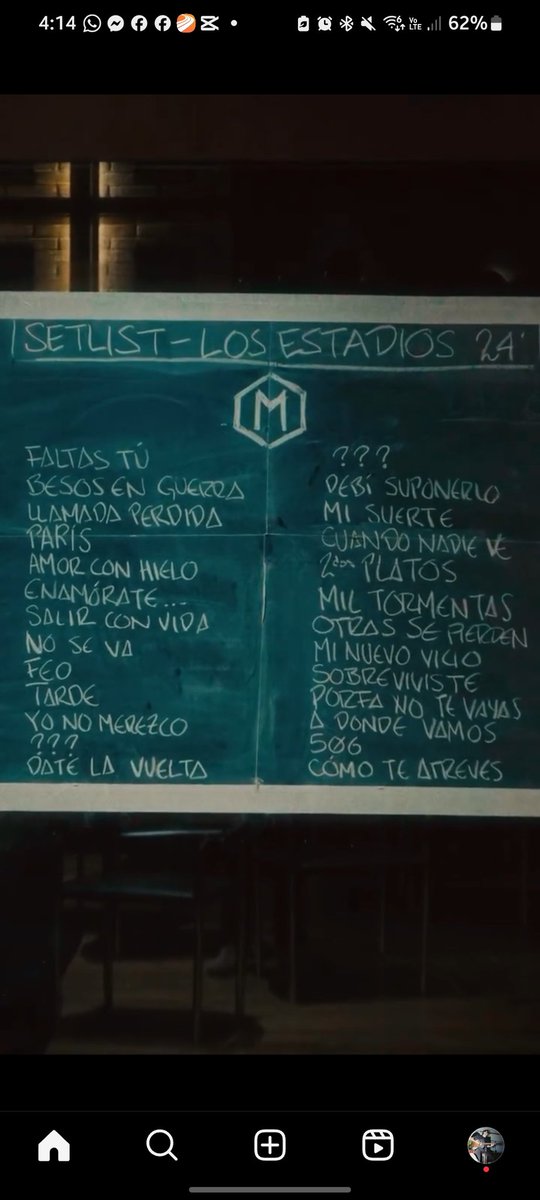 4:14
Yo
LTE
62%
SETLIST - LOS ESTADIOS 24'
M
FALTAS TÚ
BESOS EN GUERRA
LLAMADA PERDIDA
PARÍS
AMOR CON HIELO
ENAMÓRATE...
SALIR CON VIDA
NO SE VA
FEO
TARDE
YO NO MEREZCO
???
DATE LA VUELTA
???
DEBÍ SUPONERLO
MI SUERTE
CUANDO NADIE VE
2dos PLATOS
MIL TORMENTAS
OTRAS SE PIERDEN
MI NUEVO VICIO
SOBREVIVISTE
PORFA NO TE VAYAS
A DONDE VAMOS
506
CÓMO TE ATREVES